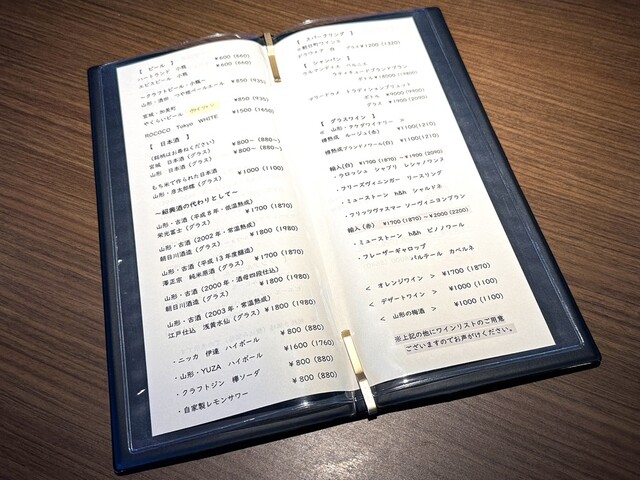 【 ビール 】
ハートランド 小瓶 ¥600(660)
エビスビール 小瓶 ¥600(660)
～クラフトビール・小瓶～
山形・酒田 つや姫ペールエール ¥850(935)
宮城・加美町
やくらいビール ¥850(935)
ROCOCO Tokyo WHITE ¥1500(1650)
【 日本酒 】
(銘柄はお尋ねください)
宮城 日本酒(グラス) ¥800～(880～)
山形 日本酒(グラス) ¥800～(880～)
もち米で作られた日本酒
山形・彦太郎糯(グラス) ¥1000(1100)
～紹興酒の代わりとして～
山形・古酒(平成8年・低温熟成)
栄光冨士(グラス) ¥1700(1870)
山形・古酒(2002年・常温熟成)
朝日川酒造(グラス) ¥1800(1980)
山形・古酒(平成13年度醸造)
澤正宗 純米原酒(グラス) ¥1700(1870)
山形・古酒(2000年・酒母四段仕込)
朝日川酒造(グラス) ¥1800(1980)
山形・古酒(2003年・常温熟成)
江戸仕込 浅黄水仙(グラス) ¥1800(1980)
・ニッカ 伊達 ハイボール ¥800(880)
・山形・YUZA ハイボール ¥1600(1760)
・クラフトジン 欅ソーダ ¥800(880)
・自家製レモンサワー ¥800(880)
【 スパークリング 】
朝日町ワイン
デラウェア 白 グラス¥1200(1320)
【 シャンパン 】
ボトル ¥9000(9900)
グラス ¥1900(2090)
【 グラスワイン 】
山形・タケダワイナリー
樽熟成 ルージュ(赤) ¥1100(1210)
樽熟成ブランノワール(白) ¥1100(1210)
輸入(白) ¥1700(1870)～¥1900(2090)
・ラロッシュ シャブリ レシャノワンヌ
・フリーズヴィニンガー リースリング
・ミューストーン h&h シャルドネ
・フリッツヴァスマー ソーヴィニヨンブラン
輸入(赤) ¥1700(1870)～¥2000(2200)
・ミューストーン h&h ピノノワール
・フレーザーギャロップ
パルテール カベルネ
< オレンジワイン > ¥1700(1870)
< デザートワイン > ¥1000(1100)
< 山形の梅酒 > ¥1000(1100)
※上記の他にワインリストのご用意
ございますのでお声がけください。